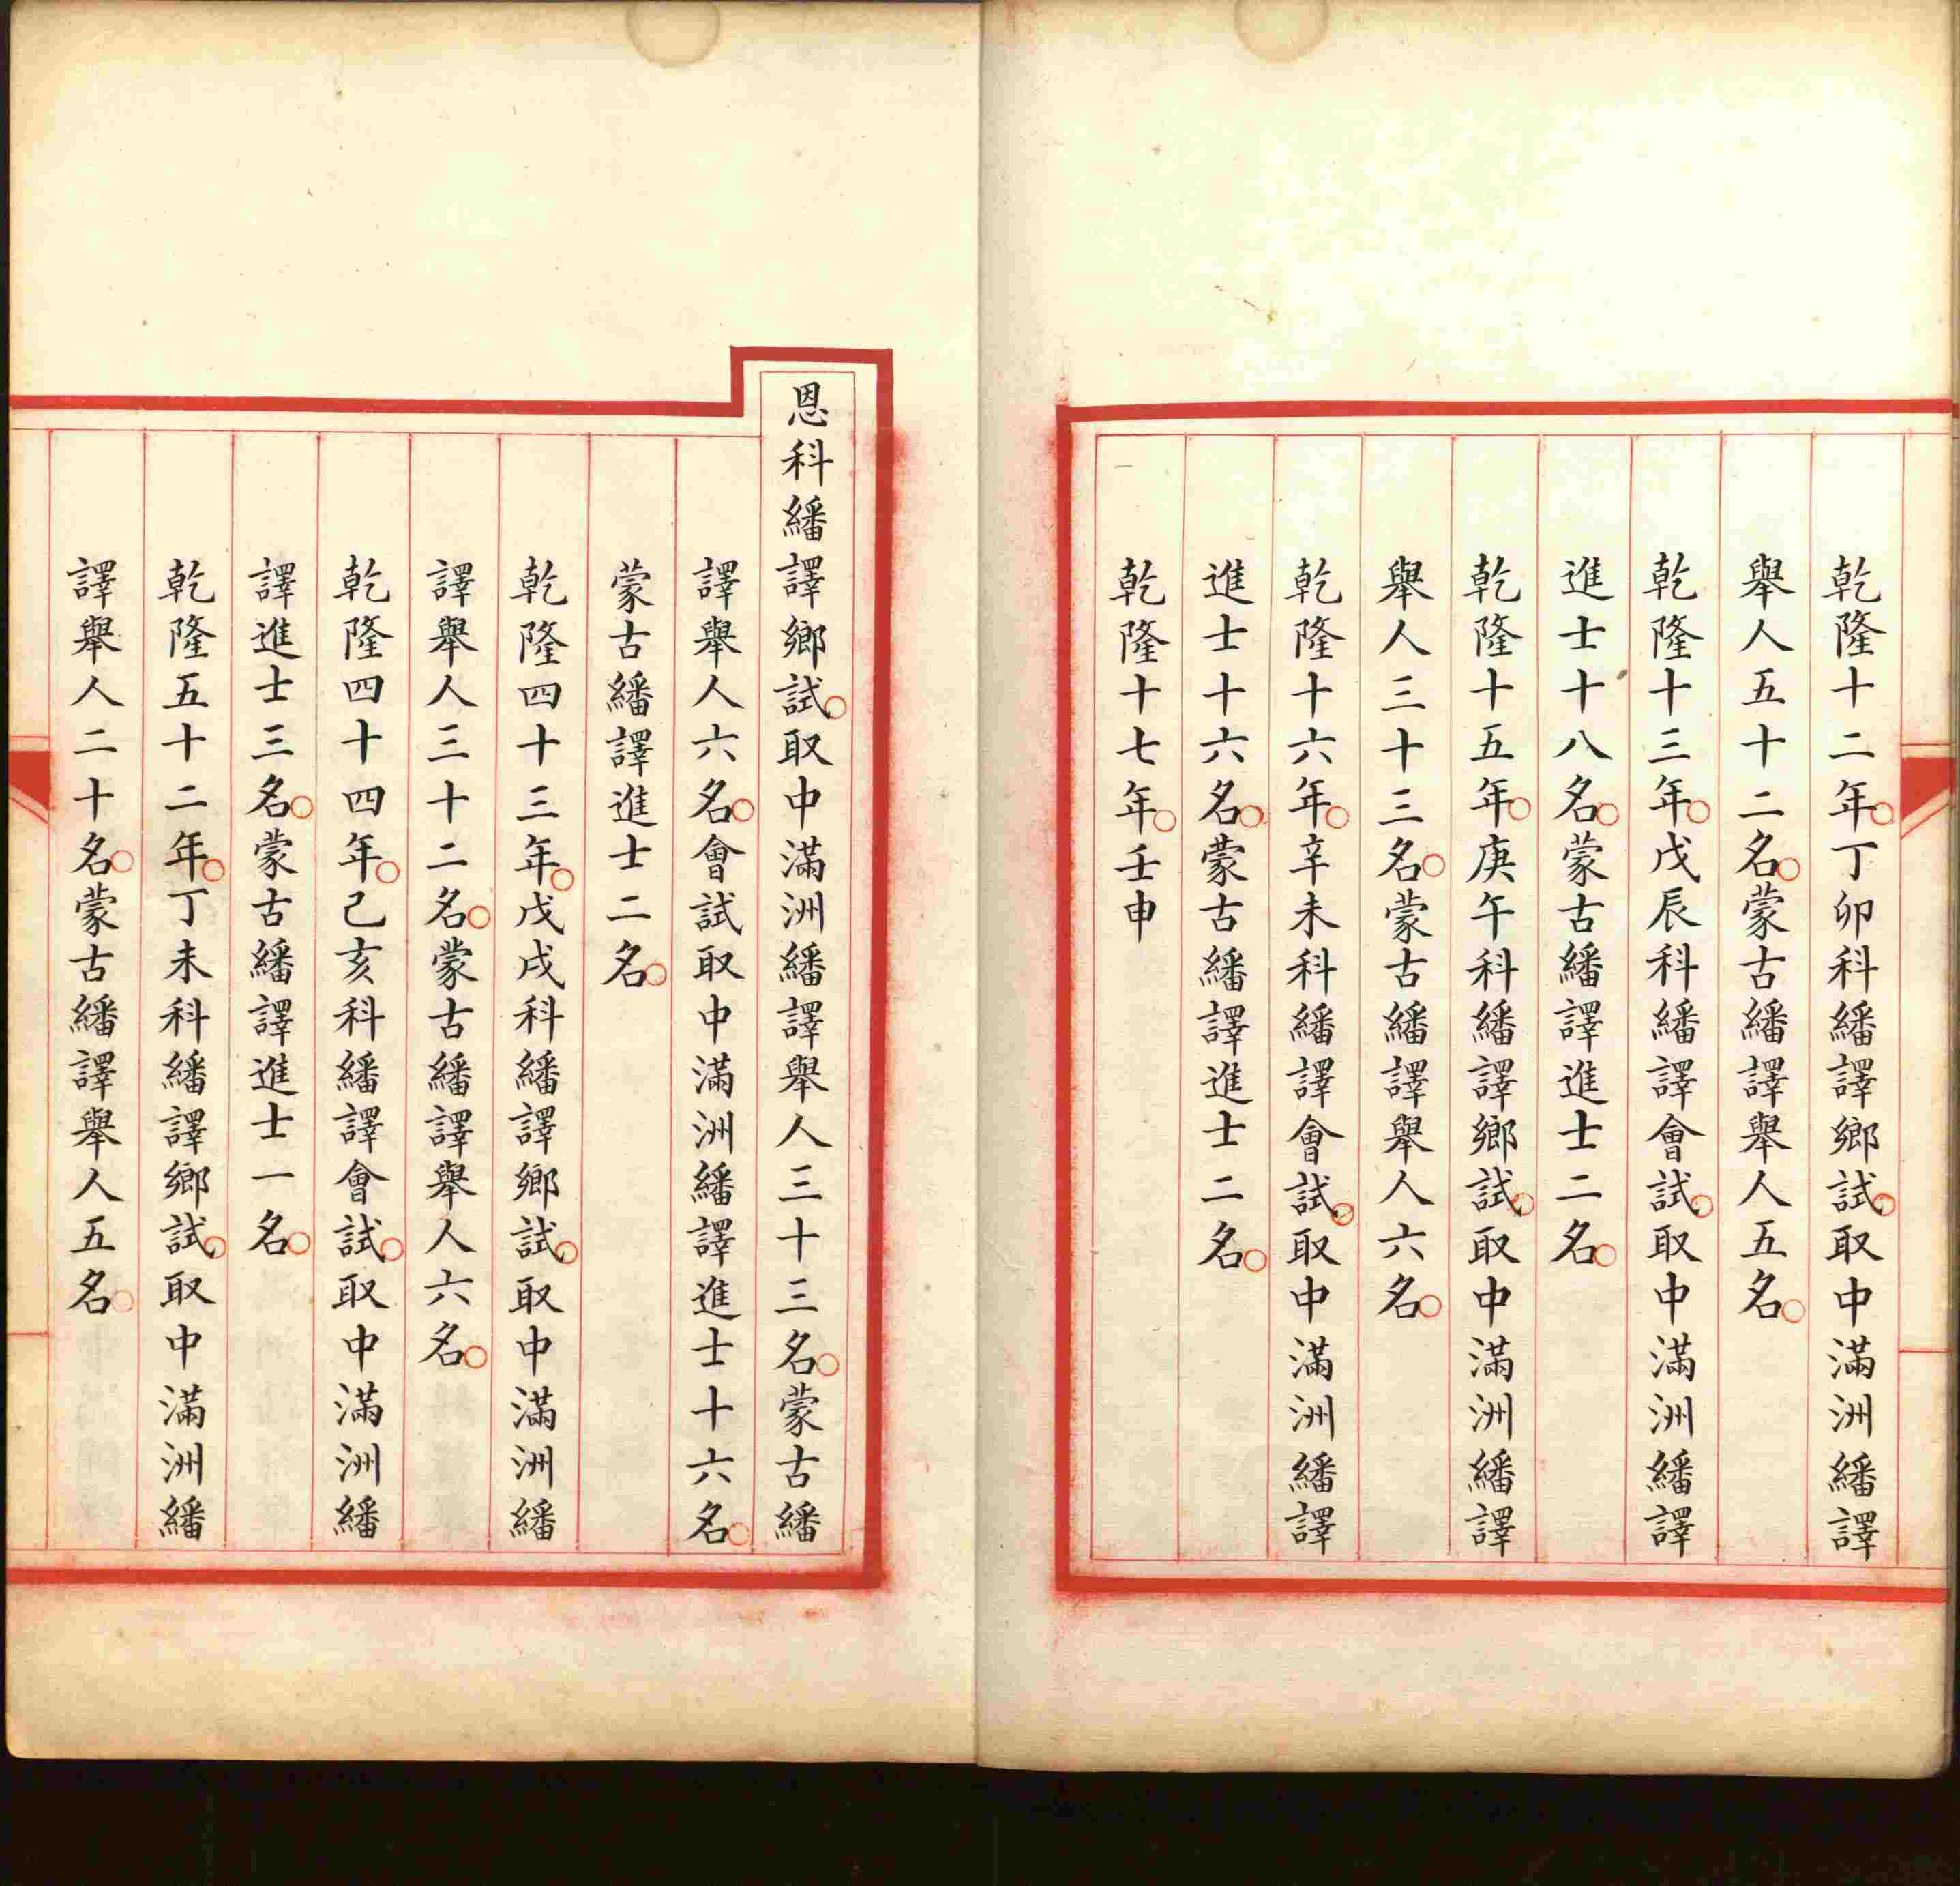 乾隆十二年丁卯科繙譯鄉試取中滿洲繙譯
舉人五十二名蒙古繙譯舉人五名
乾隆十三年戊辰科繙譯會試取中滿洲繙譯
進士十八名蒙古繙譯進士二名
乾隆十五年庚午科繙譯鄉試取中滿洲繙譯
舉人三十三名蒙古繙譯舉人六名
乾隆十六年辛未科繙譯會試取中滿洲繙譯
進士十六名蒙古繙譯進士二名
乾隆十七年壬申
恩科繙譯鄉試取中滿洲繙譯舉人三十三名蒙古繙
譯舉人六名會試取中滿洲繙譯進士十六名
蒙古繙譯進士二名
乾隆四十三年戊戌科繙譯鄉試取中滿洲繙
譯舉人三十二名蒙古繙譯舉人六名
乾隆四十四年己亥科繙譯會試取中滿洲繙
譯進士三名蒙古繙譯進士一名
乾隆五十二年丁未科繙譯鄉試取中滿洲繙
譯舉人二十名蒙古繙譯舉人五名